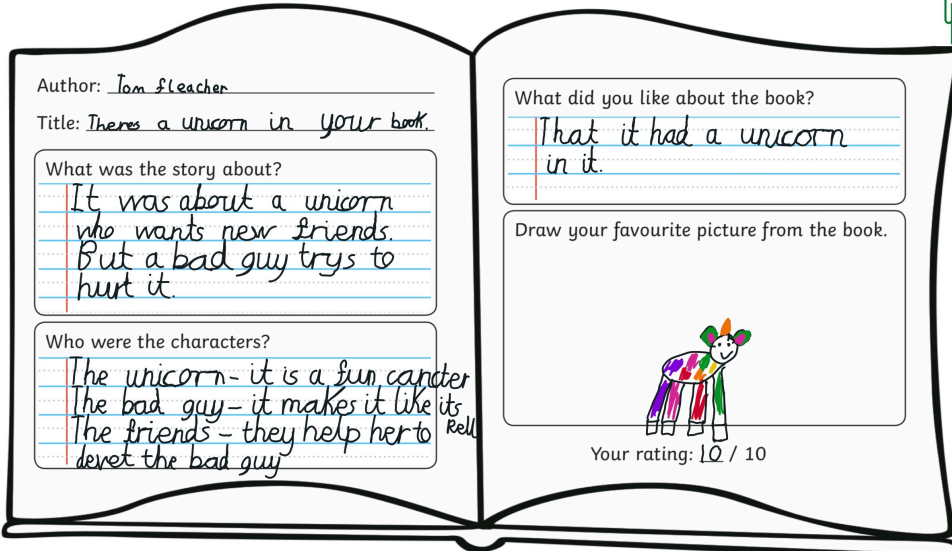 Author: Tom fleacher
Title: Theres a unicorn in your book.
What was the story about?
It was about a unicorn
who wants new friends.
But a bad guy trys to
hurt it.
Who were the characters?
The unicorn - it is a fun cancter
The bad guy - it makes it like its
Rell
The friends - they help her to
devet the bad guy
What did you like about the book?
That it had a unicorn
in it.
Draw your favourite picture from the book.
Your rating: 10 / 10